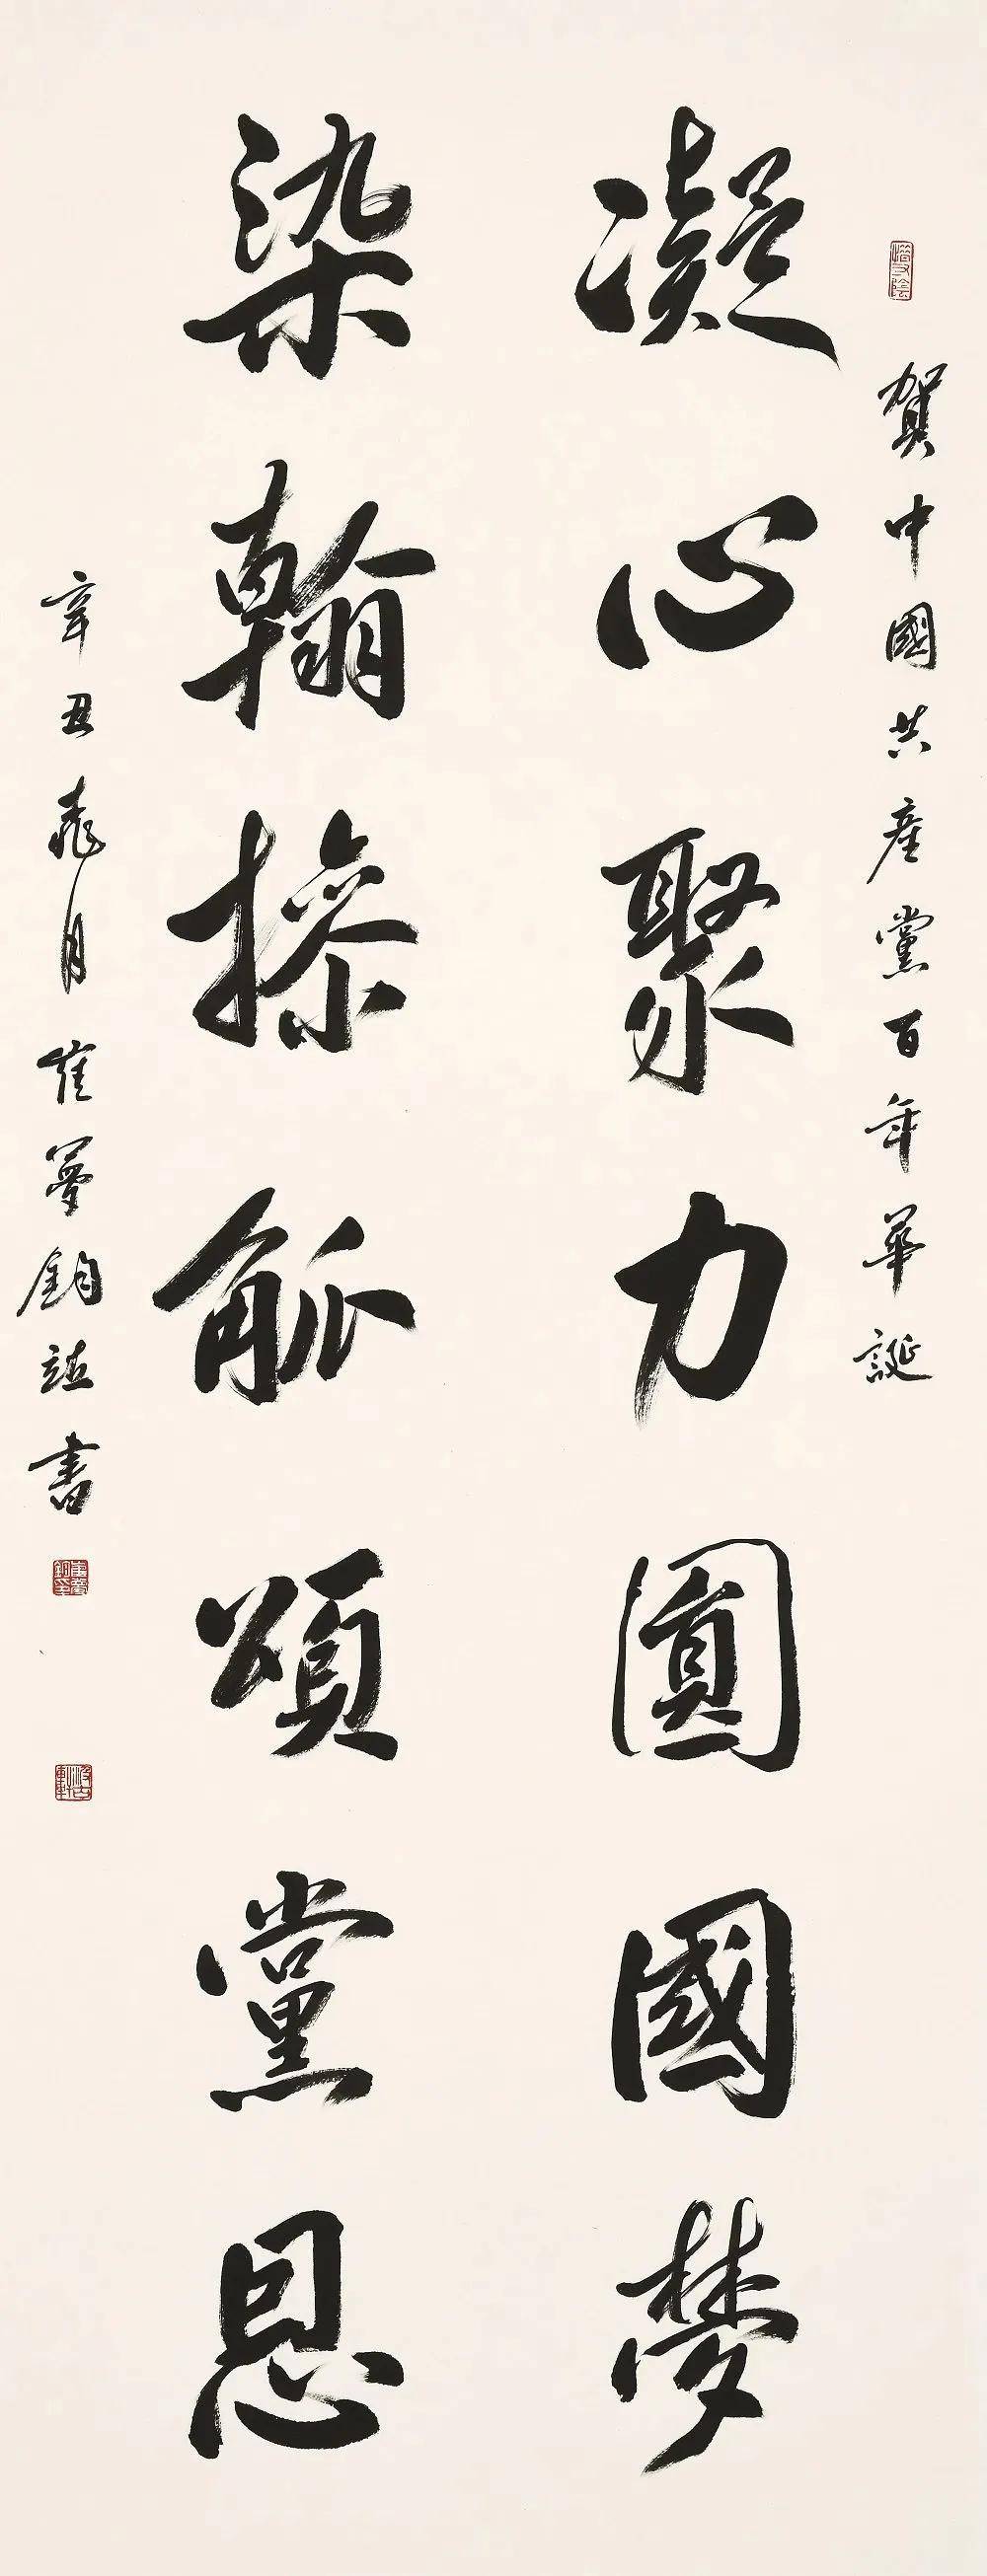 賀中國共產黨百年華誕
凝心聚力圓國梦
染翰操觚頌黨恩
辛丑桃月崔夢鈞書